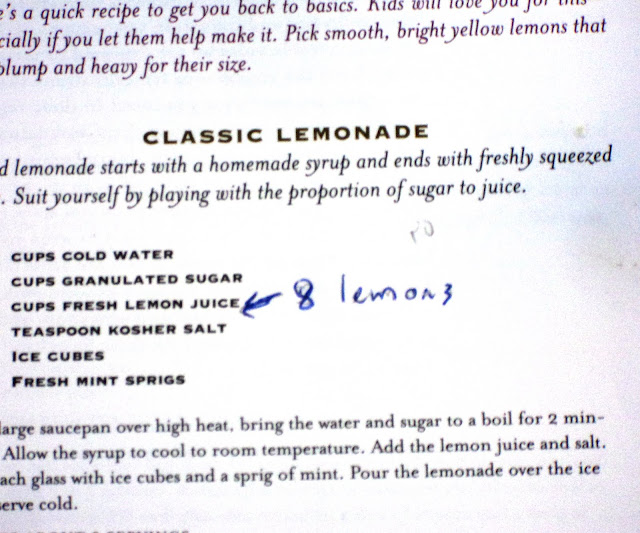 's a quick recipe to get you back to basics. Kids will love you for this
cially if you let them help make it. Pick smooth, bright yellow lemons that
plump and heavy for their size.
CLASSIC LEMONADE
d lemonade starts with a homemade syrup and ends with freshly squeezed
. Suit yourself by playing with the proportion of sugar to juice.
CUPS COLD WATER
CUPS GRANULATED SUGAR
CUPS FRESH LEMON JUICE ← 8 lemons
TEASPOON KOSHER SALT
ICE CUBES
FRESH MINT SPRIGS
large saucepan over high heat, bring the water and sugar to a boil for 2 min-
Allow the syrup to cool to room temperature. Add the lemon juice and salt.
ach glass with ice cubes and a sprig of mint. Pour the lemonade over the ice
serve cold.